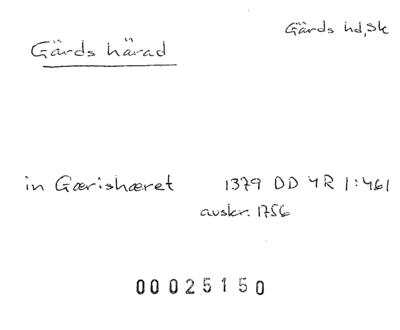 Gärds hd, Sk
Gärds härad
in Gærishæret 1379 DD 4R 1:461
avskr. 1756
00025150